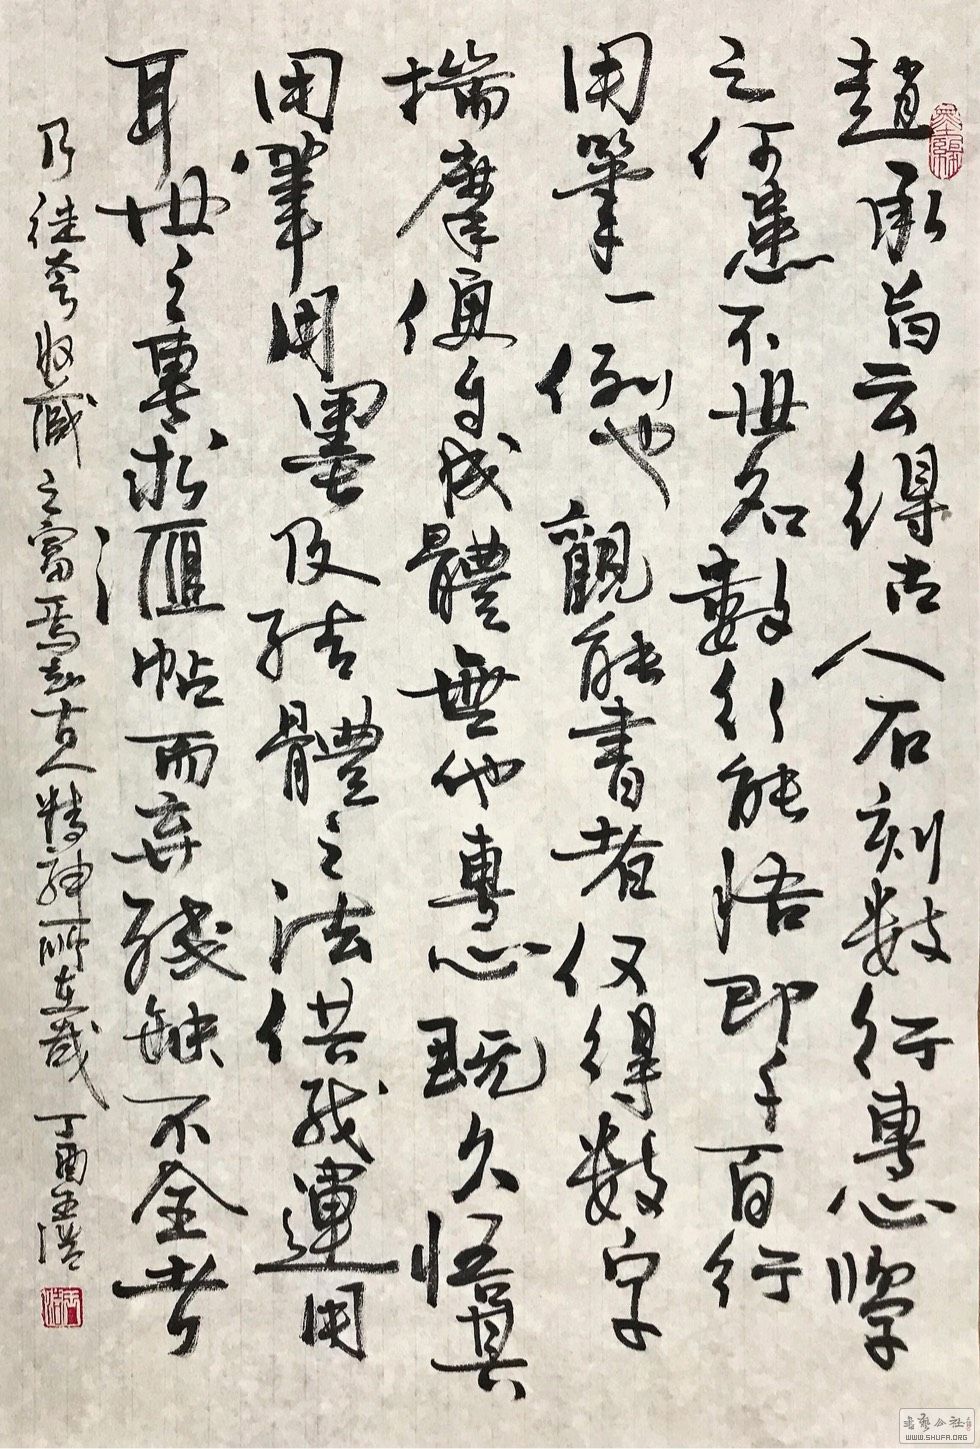 趙承旨云得古人石刻數行專心學
之何患不世名數行能悟即千百行
用筆一例也觀能書者仅得數字
揣摩便自成體無他專心既久悟其
用筆用墨及結體之法供我運用
耳世之專求匯帖而弃殘缺不全者
乃徒夸收藏之富焉知古人精神所在哉 丁酉王浩
WWW.SHUFA.ORG